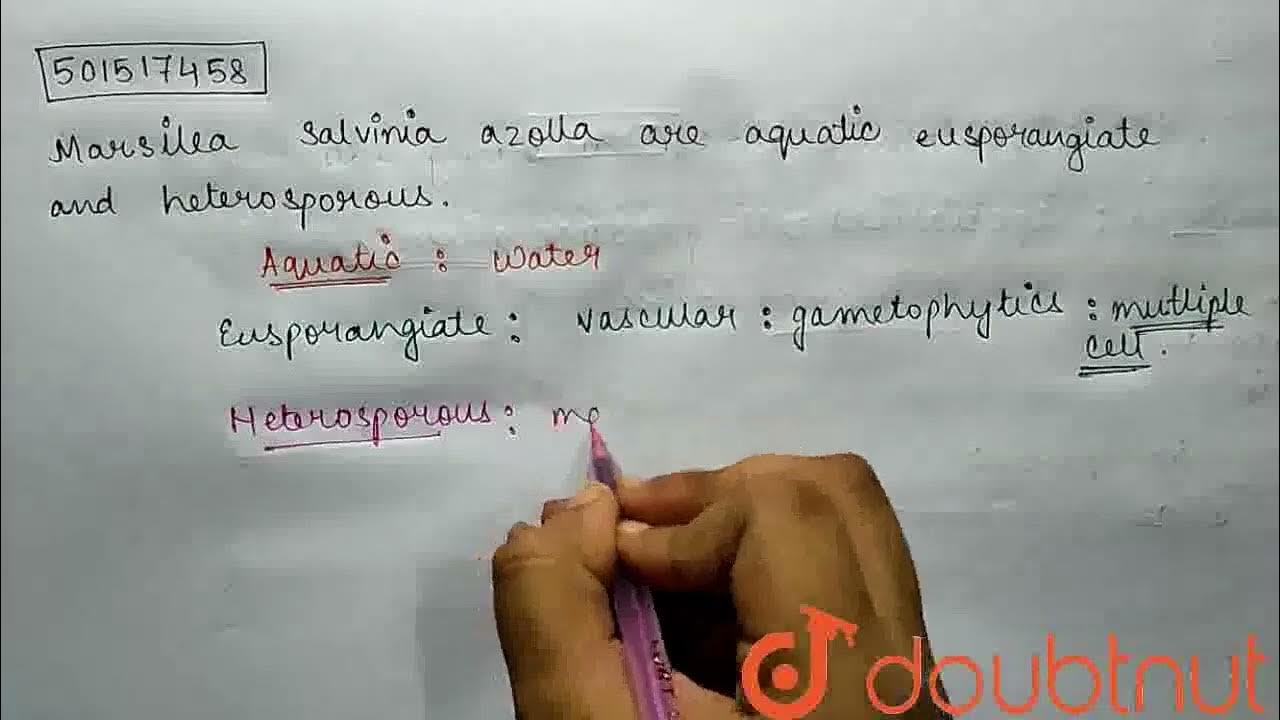 501517458
Marsilea salvinia azolla are aquatic eusporangiate
and heterosporous.
Aquatic : Water
Eusporangiate : vascular : gametophytics : mutliple
cell.
Heterosporous : me
doubtnut